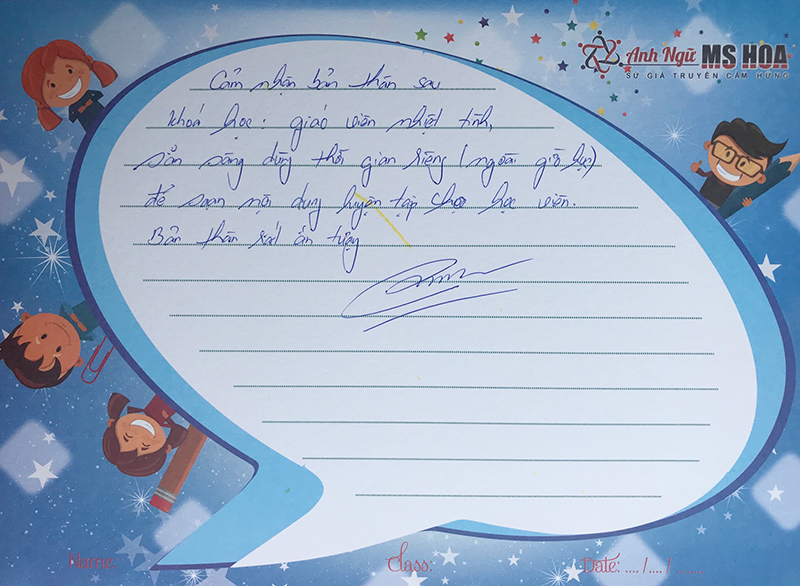 Anh Ngữ MS HOA
SỨ GIẢ TRUYỀN CẢM HỨNG
Cảm nhận bản thân sau
khoá học: giáo viên nhiệt tình,
sẵn sàng dùng thời gian riêng (ngoài giờ học)
để soạn nội dung luyện tập cho học viên.
Bản thân rất ấn tượng
Name:
Class:
Date: ..../..../.......